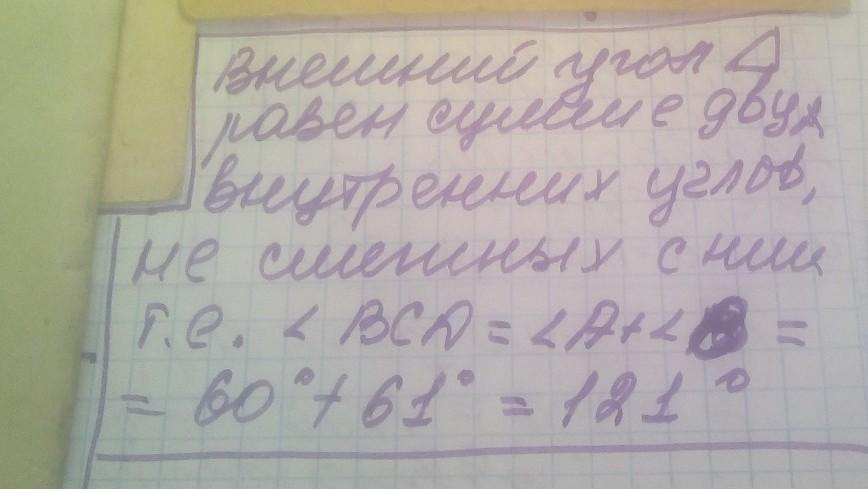 Внешний угол Δ
равен сумме двух
внутренних углов,
не смежных с ним
т.е. < BCD = <A+<B =
= 60°+61° = 121°